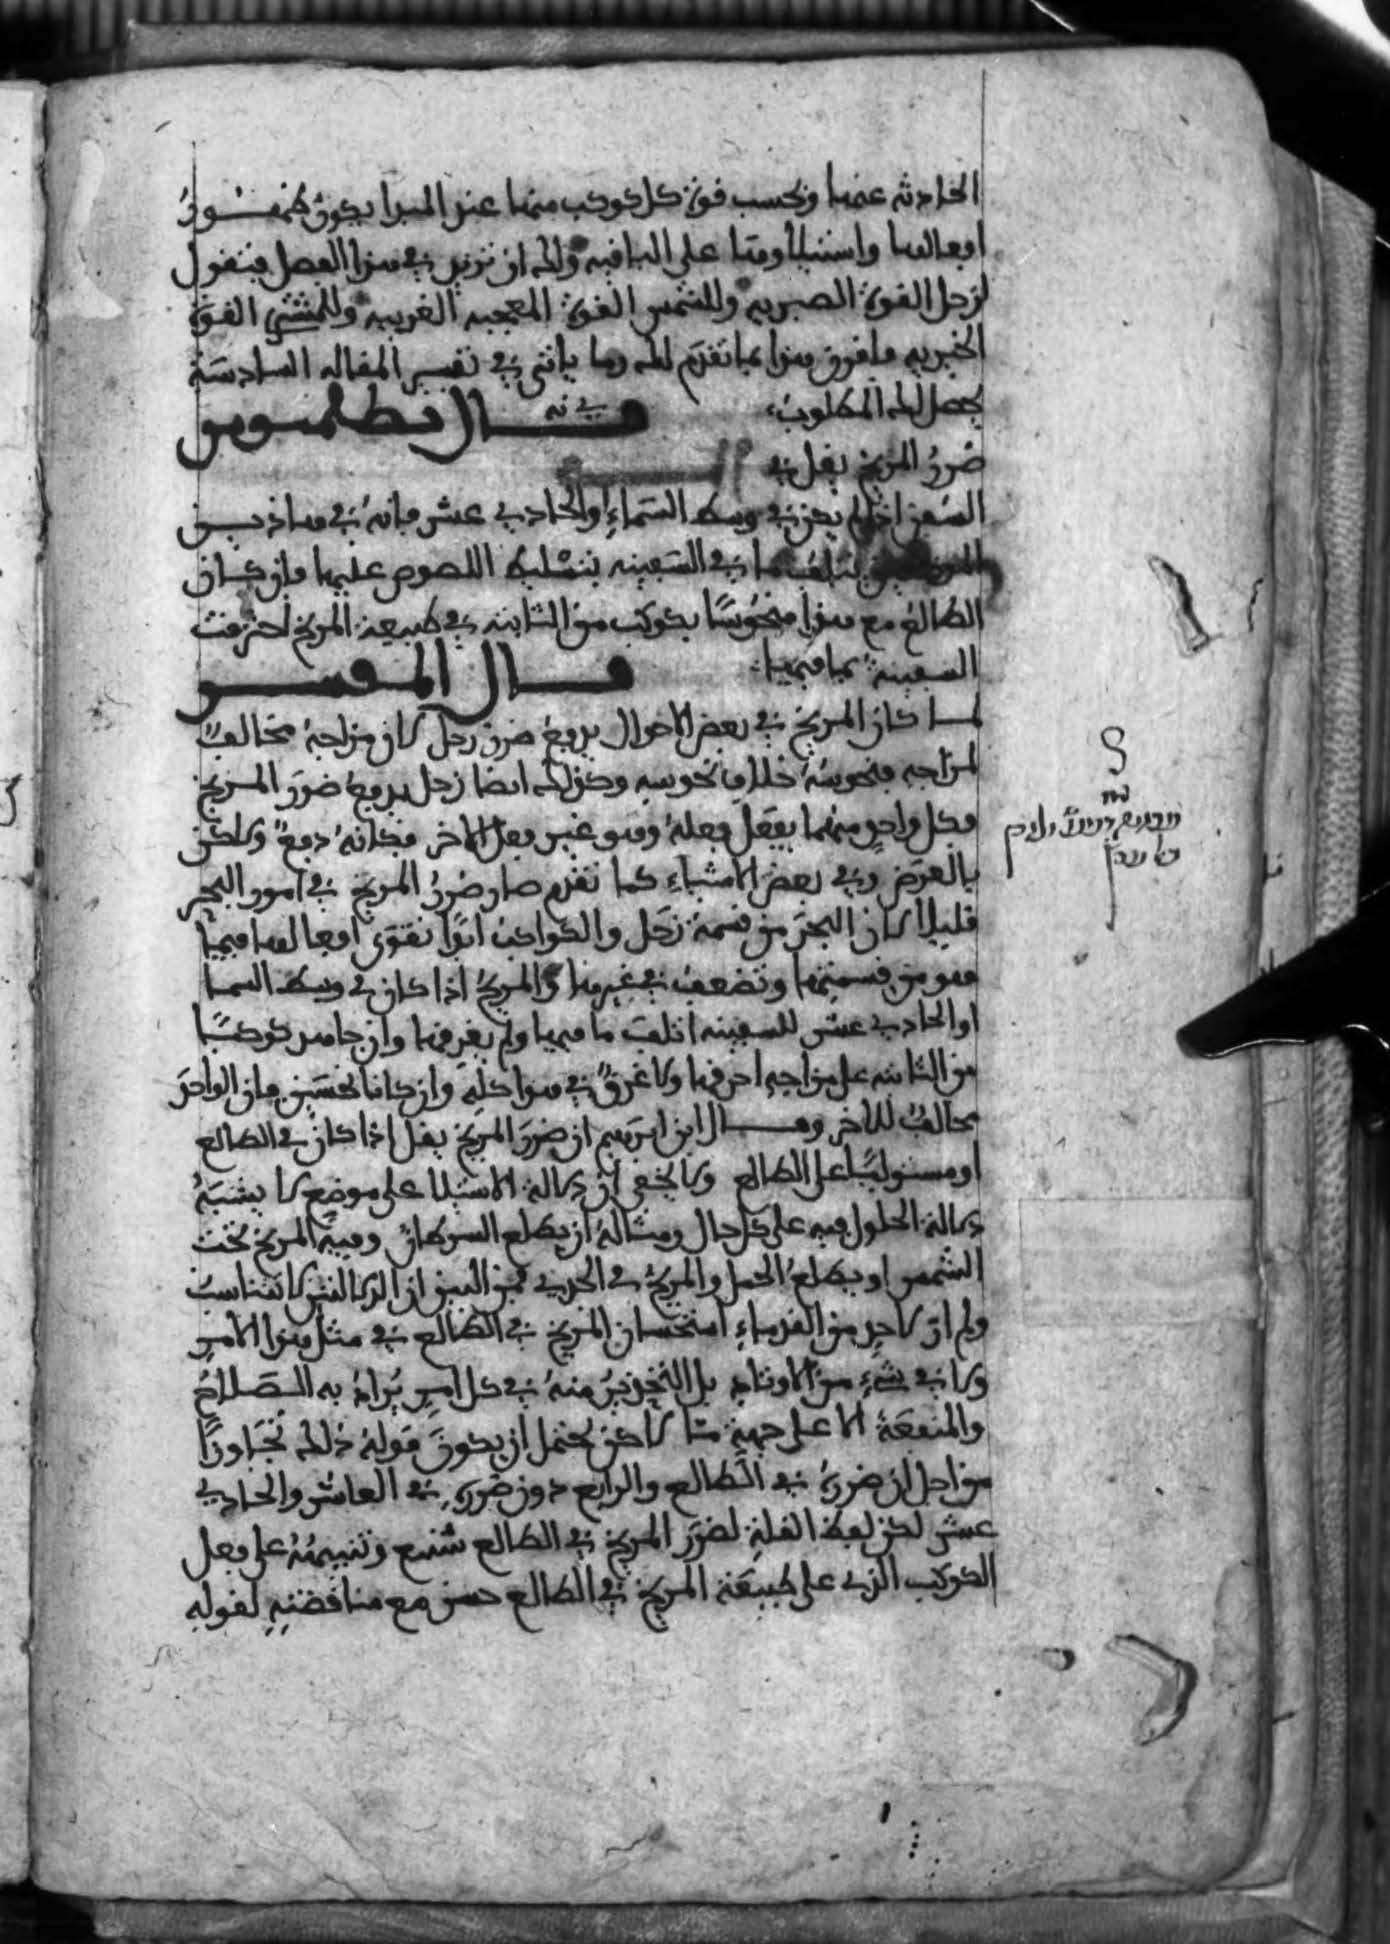 الحادثة عنها وبحسب قوة كل كوكب منها عند المبدا يكون ظهور
افعالها واستيلاوها على الباقية ولك ان تزيد في هذا الفصل فتقول
لزحل القوة الصبرية وللشمس القوة المعجبة الغريبة وللمشتري القوة
الخيرية فافرق هذا بما تقدم لك وما ياتي في تفسير المقالة السادسة
يحصل لك المطلوب
قال بطلميوس
ضرر المريخ يقل في
السفن اذا لم يكن في وسط السماء والحادي عشر فانه في هاذين
يتلف ما في السفينة بتسليط اللصوص عليها وان كان
الطالع مع هذا منحوسا بكوكب من الثابتة في طبيعة المريخ احترقت
السفينة بما فيها
قال المفسر
لما كان المريخ في بعض الاحوال يدفع ضرر زحل كان مزاجه مخالفا
لمزاجه فنحوسه خلاف نحوسه وكذلك ايضا زحل يدفع ضرر المريخ
فكل واحد منهما يفعل فعله وهو غير فعل الاخر فكانه دفع ولكن
بالعرض وفي بعض الاشياء كما تقدم صار ضرر المريخ في امور البحر
قليلا كان البحر من قسمة زحل والكواكب ابدا تقوى افعالها فيما
هو من قسمتها وتضعف في غيرها والمريخ اذا كان في وسط السما
او الحادي عشر للسفينة اتلف ما فيها ولم يغرقها وان جاسد كوكبا
من الثابتة على مزاجه احرقها ولا غرق في هذا كله وان كانا نحسين فان الواحد
مخالف للاخر وقال ابن ابرهيم ان ضرر المريخ يقل اذا كان في الطالع
او مستوليا على الطالع ولا يخفى ان دلالة الاستيلا على موضع لا يشبه
دلالة الحلول فيه على كل حال ومثاله ان يطلع السرطان وفيه المريخ تحت
الشمس او يطلع الحمل والمريخ في الجدي فمن البين ان الدلالتين لا تتناسب
ولم ار لاحد من القدماء استحسان المريخ في الطالع في مثل هذا الامر
ولا في شيء من الاوتاد بل التحذير منه في كل امر يراد به الصلاح
والمنفعة الا على جهة ما لاكن يحتمل ان يكون قوله ذلك تجاوزا
من اجل ان ضرره في الطالع والرابع دون ضرره في العاشر والحادي
عشر لكن لفظ القلة لضرر المريخ في الطالع شنيع وتنبيهه على فعل
الكوكب الذي على طبيعة المريخ في الطالع حسن مع مناقضته لقوله